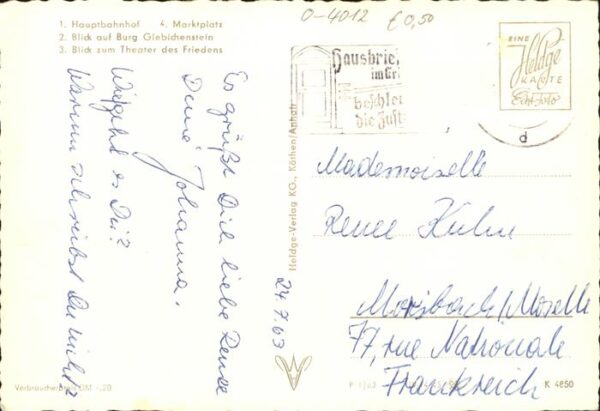 1. Hauptbahnhof 4. Marktplatz
2. Blick auf Burg Giebichenstein
3. Blick zum Theater des Friedens
0-4012 € 0,50
EINE
Heldge
KARTE
Echt Foto
Hausbrie
im Er
beschleu
die Zust
d
Es grüßt Dich liebe Renee
Deine Johanna.
Wie geht es Dir?
Warum schreibst Du nicht?
24.7.63
Heldge-Verlag KG., Köthen/Anhalt
Mademoiselle
Renee Kuhn
Morsbach/Moselle
77, rue Nationale
Frankreich
Verbraucherpreis DM -,20
K 4850